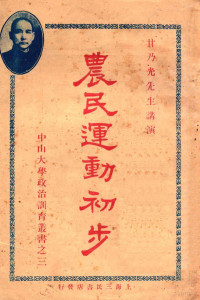 甘乃光先生講演
農民運動初步
中山大學政治訓育叢書之三
上海三民書店發行